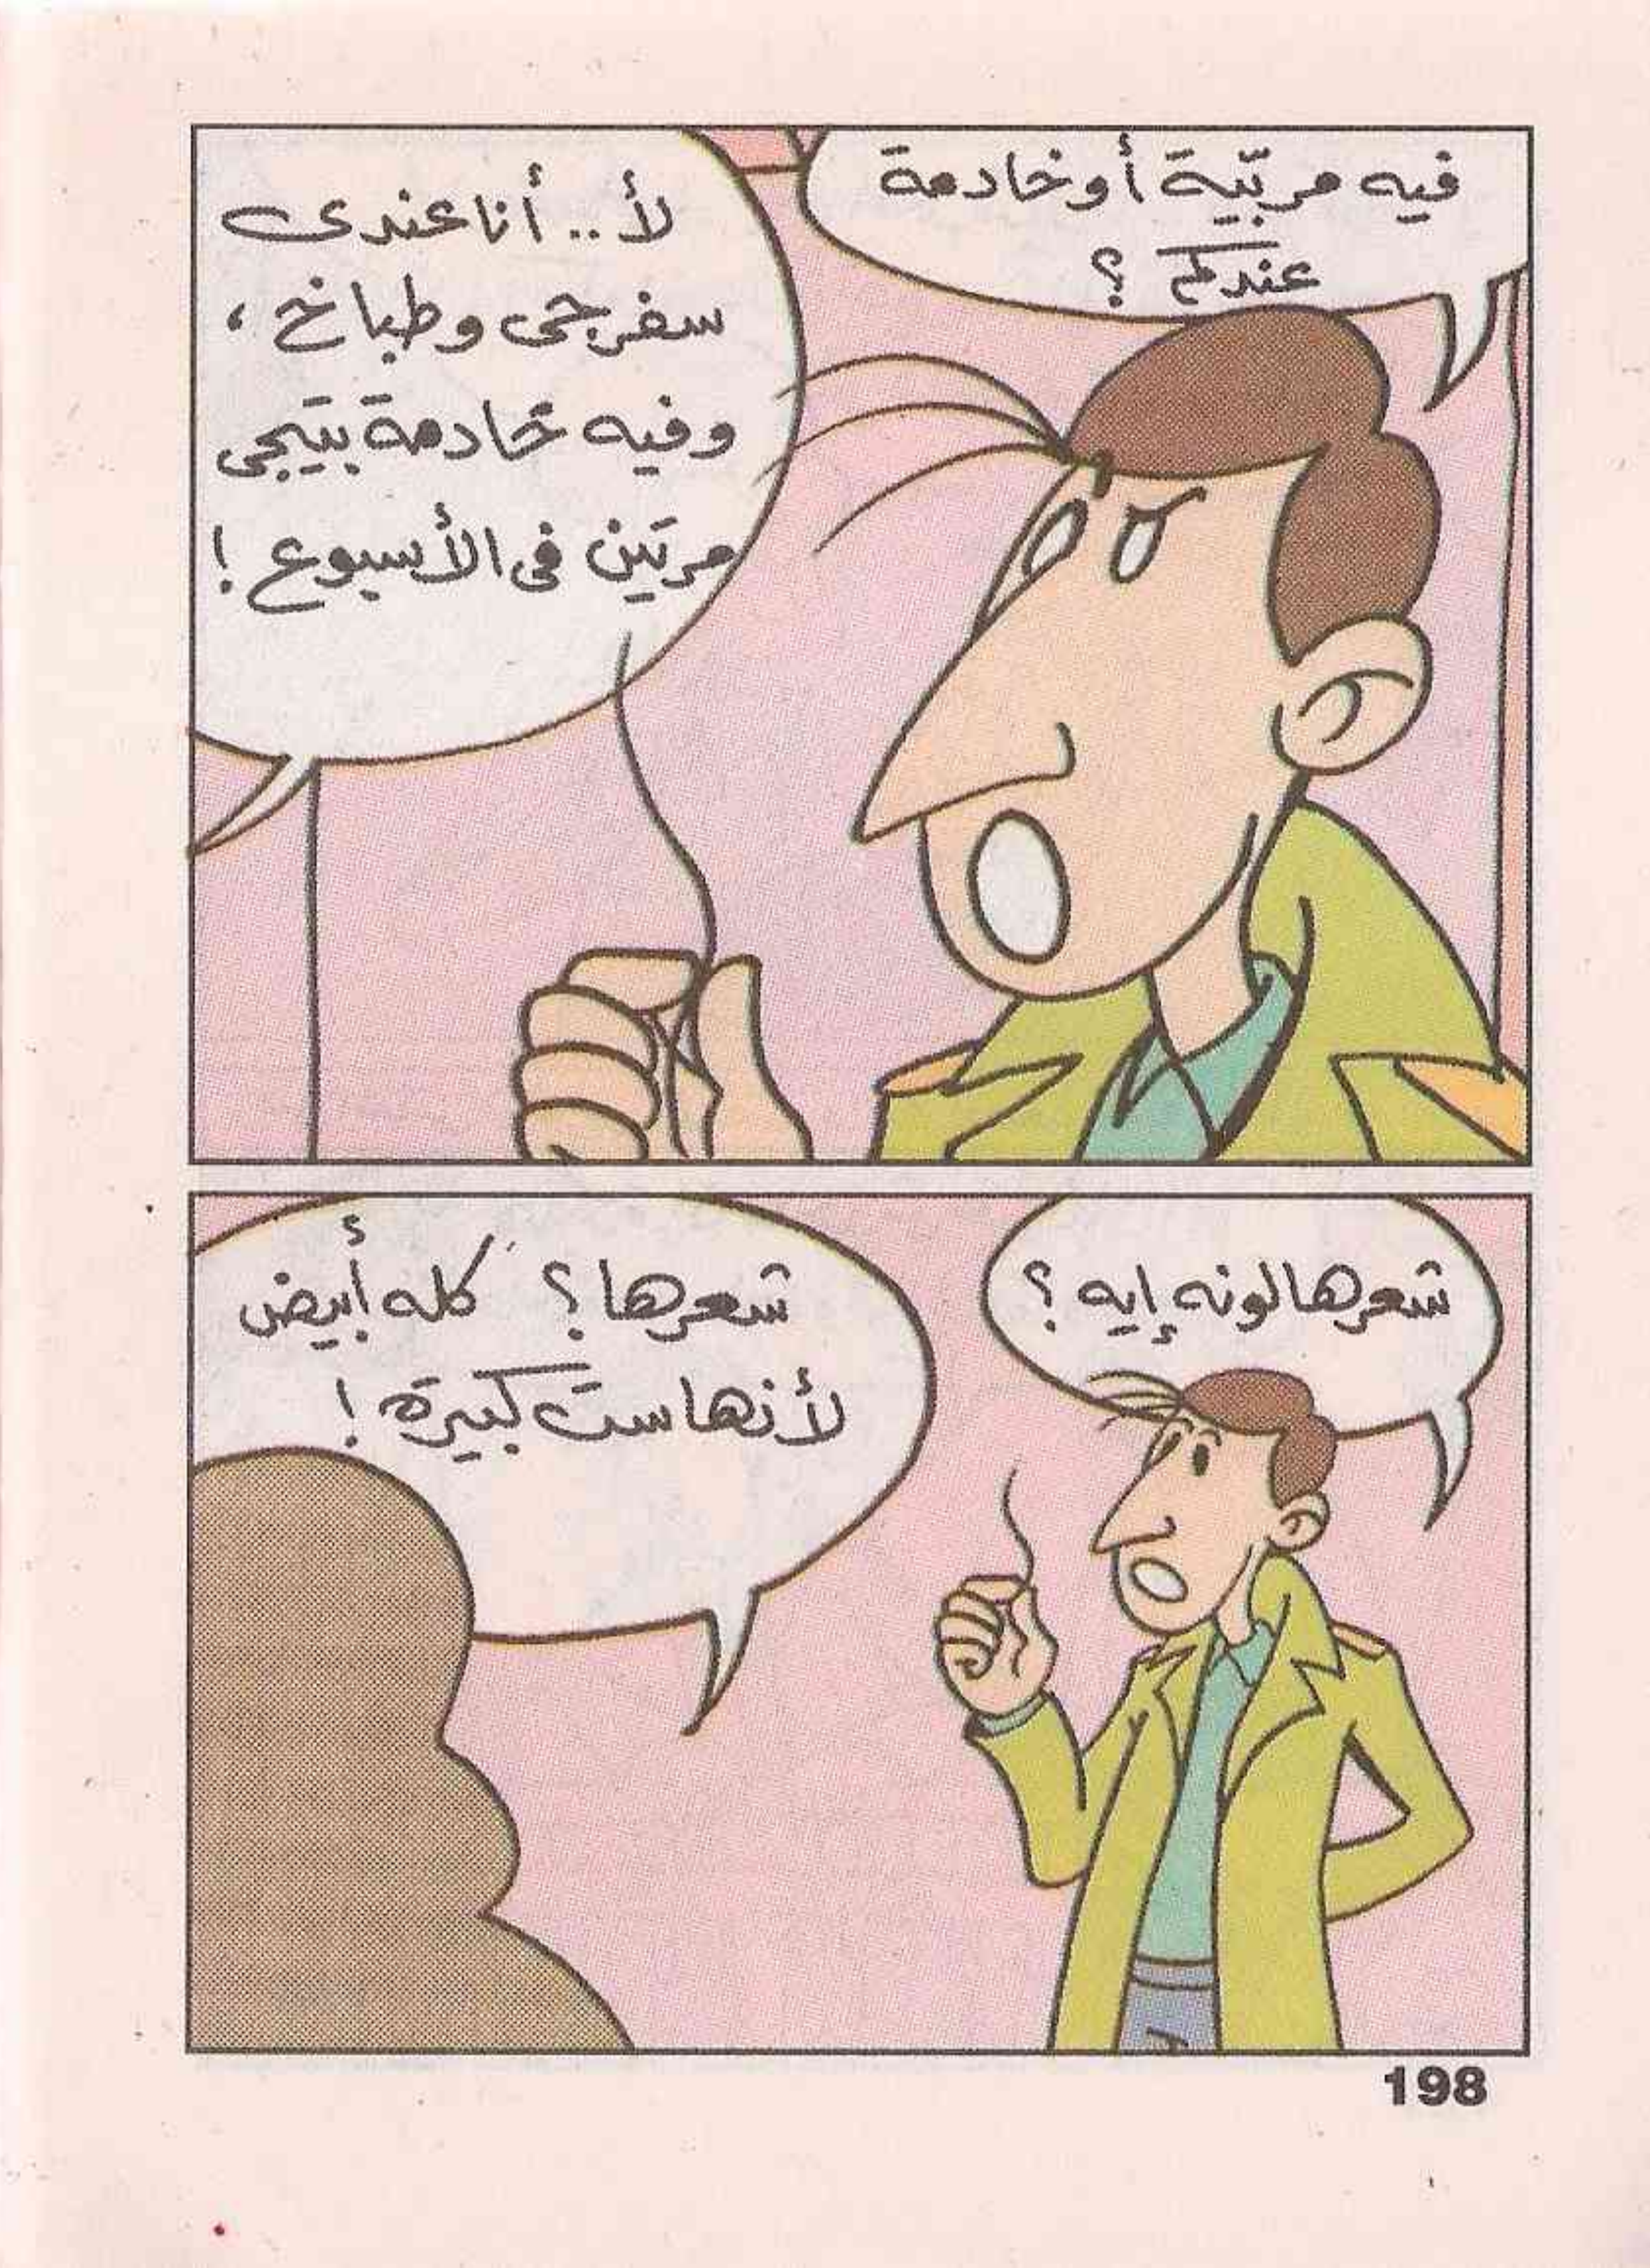 فيه مربّية أو خادمة
عندكم ؟
لأ .. أنا عندى
سفرجى وطباخ ،
وفيه خادمة بتيجى
مرتين فى الأسبوع !
شعرها لونه إيه ؟
شعرها ؟ كله أبيض
لأنها ست كبيرة !
198